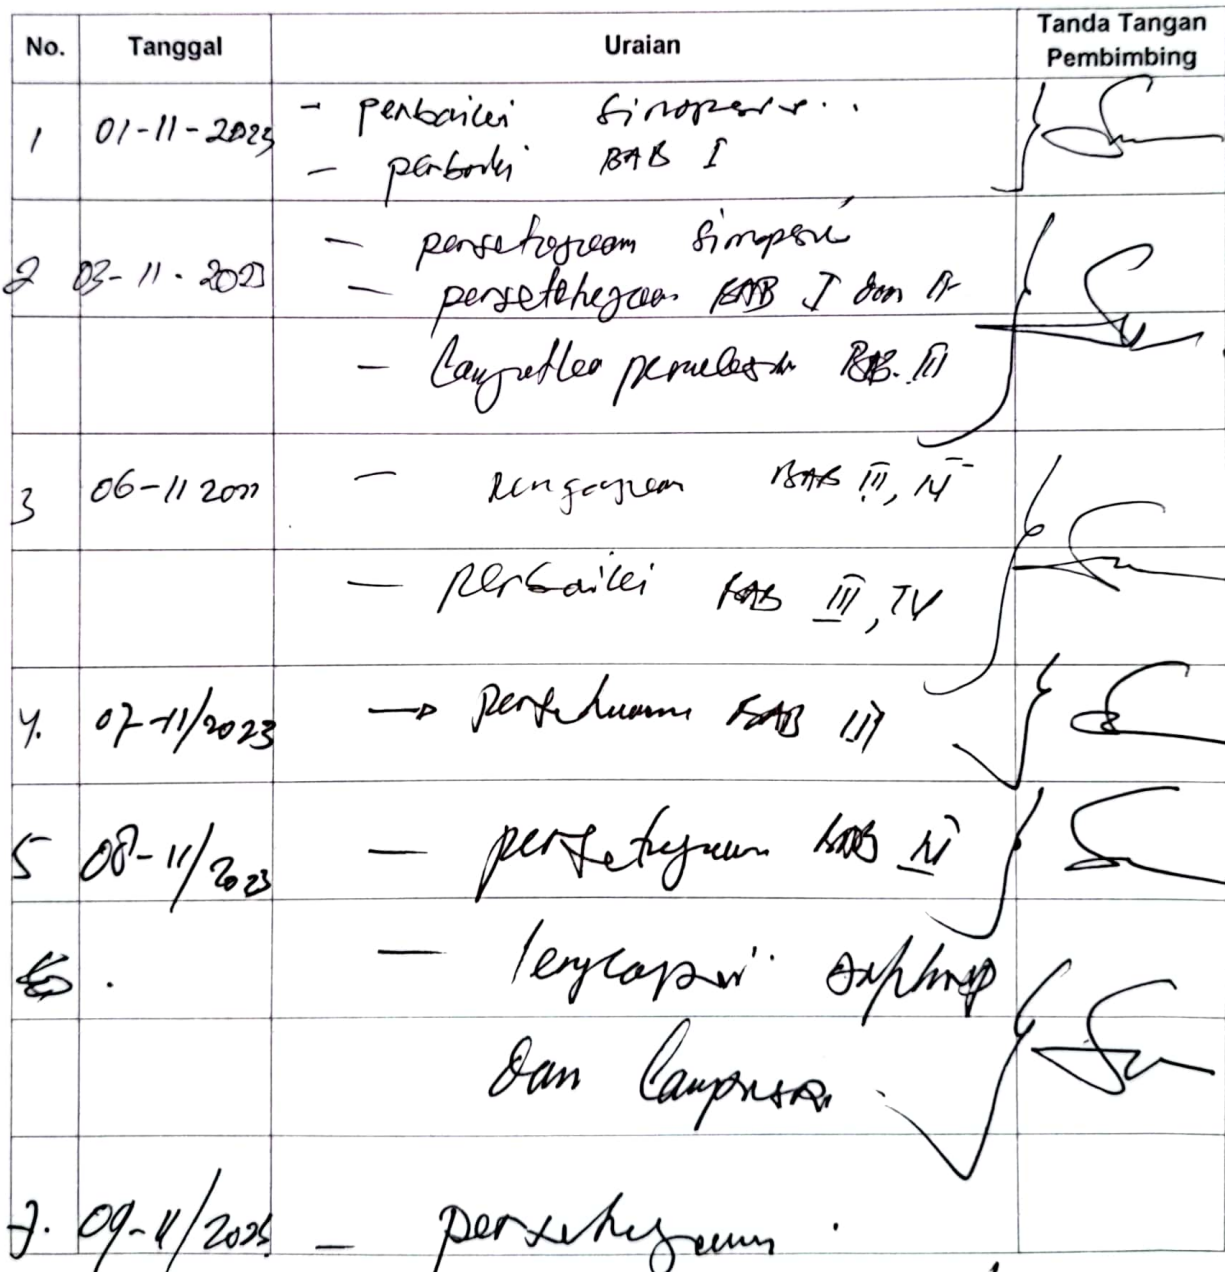 No. Tanggal Uraian Tanda Tangan Pembimbing
1 01-11-2023 - perbaiki Sinopsis
- perbaiki BAB I
2 03-11-2023 - persetujuan Sinopsis
- persetujuan BAB I dan II
- BAB III
3 06-11 BAB III, IV
- perbaiki BAB III, IV
4. 07-11/2023 → persetujuan BAB III
5 08-11/2023 - persetujuan BAB IV
- lengkapi
dan Lampiran
7. 09-11/2023 - persetujuan